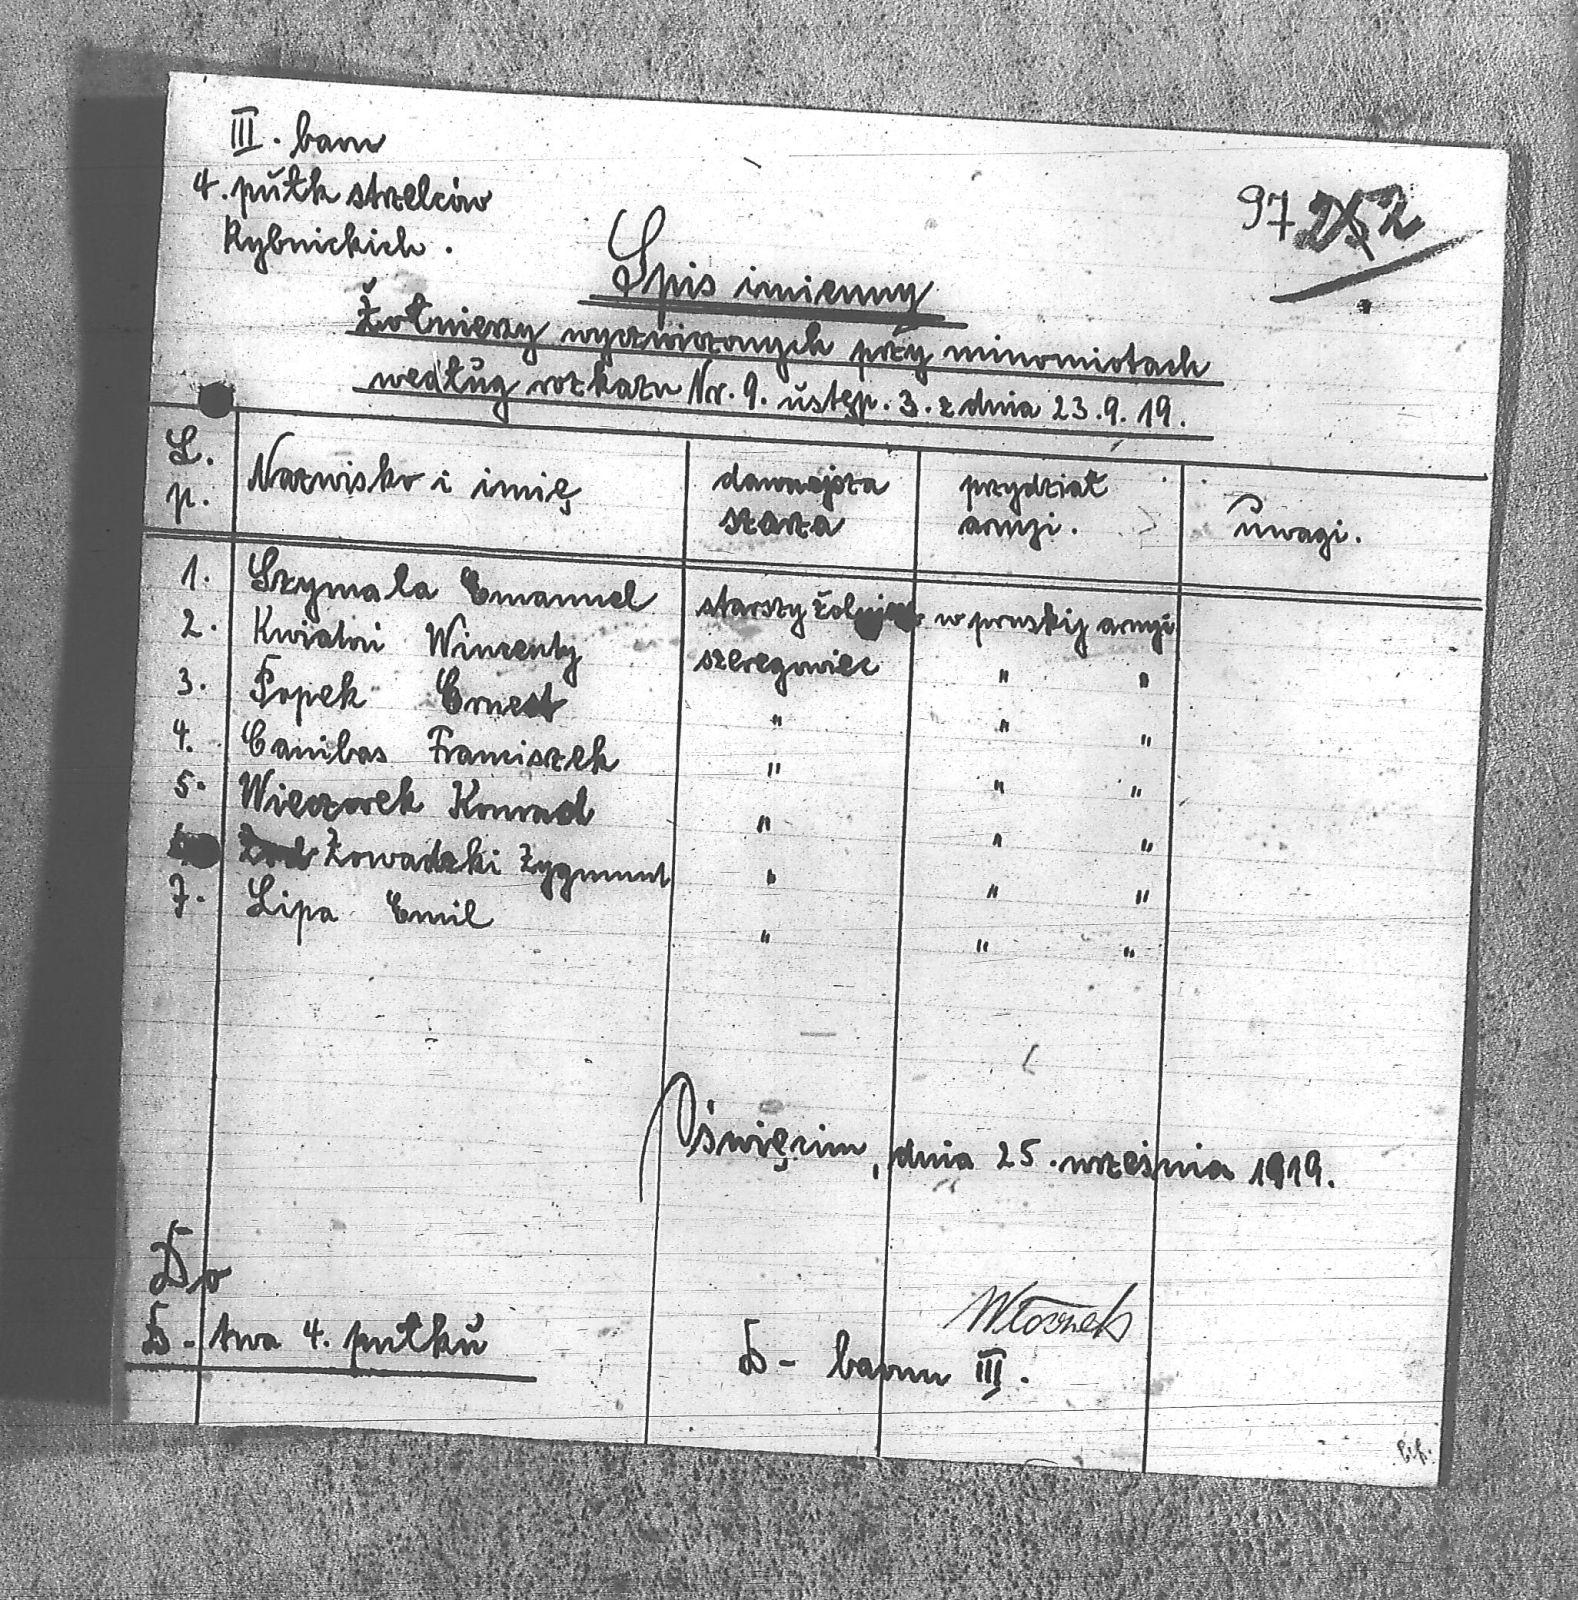 III. baon
4. pułk strzelców
Rybnickich.
97 252
Spis imienny
Żołnierzy wyćwiczonych przy minomiotach
według rozkazu Nr. 9. ustęp. 3. z dnia 23.9.19.
L. p. Nazwisko i imię dawniejsza szarża przydział armji. uwagi.
1. Szymala Emanuel starszy żołnierz w pruskij armji
2. Kwiatoń Wincenty szeregowiec " "
3. Popek Ernest " " "
4. Canibas Franciszek " " "
5. Wieczorek Konrad " " "
Żowadzki Zygmunt " " "
7. Lipa Emil " " "
Oświęcim, dnia 25. września 1919.
Do
D-twa 4. pułku
D- baonu III.